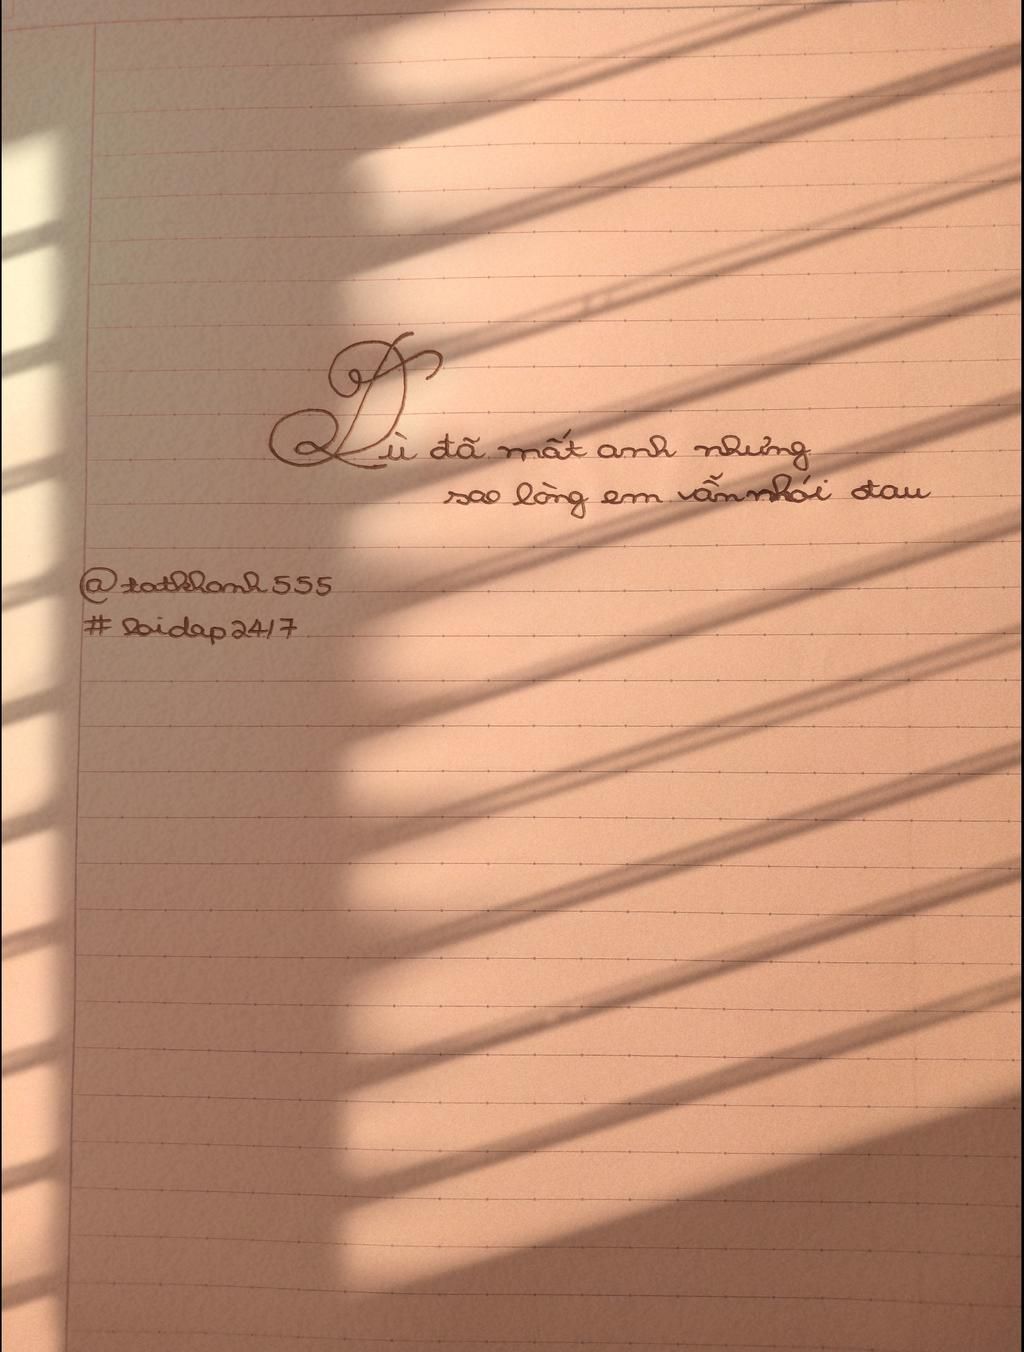 Dù đã mất anh nhưng
sao lòng em vẫn nhói đau
@tatkhanh555
#loidap24/7